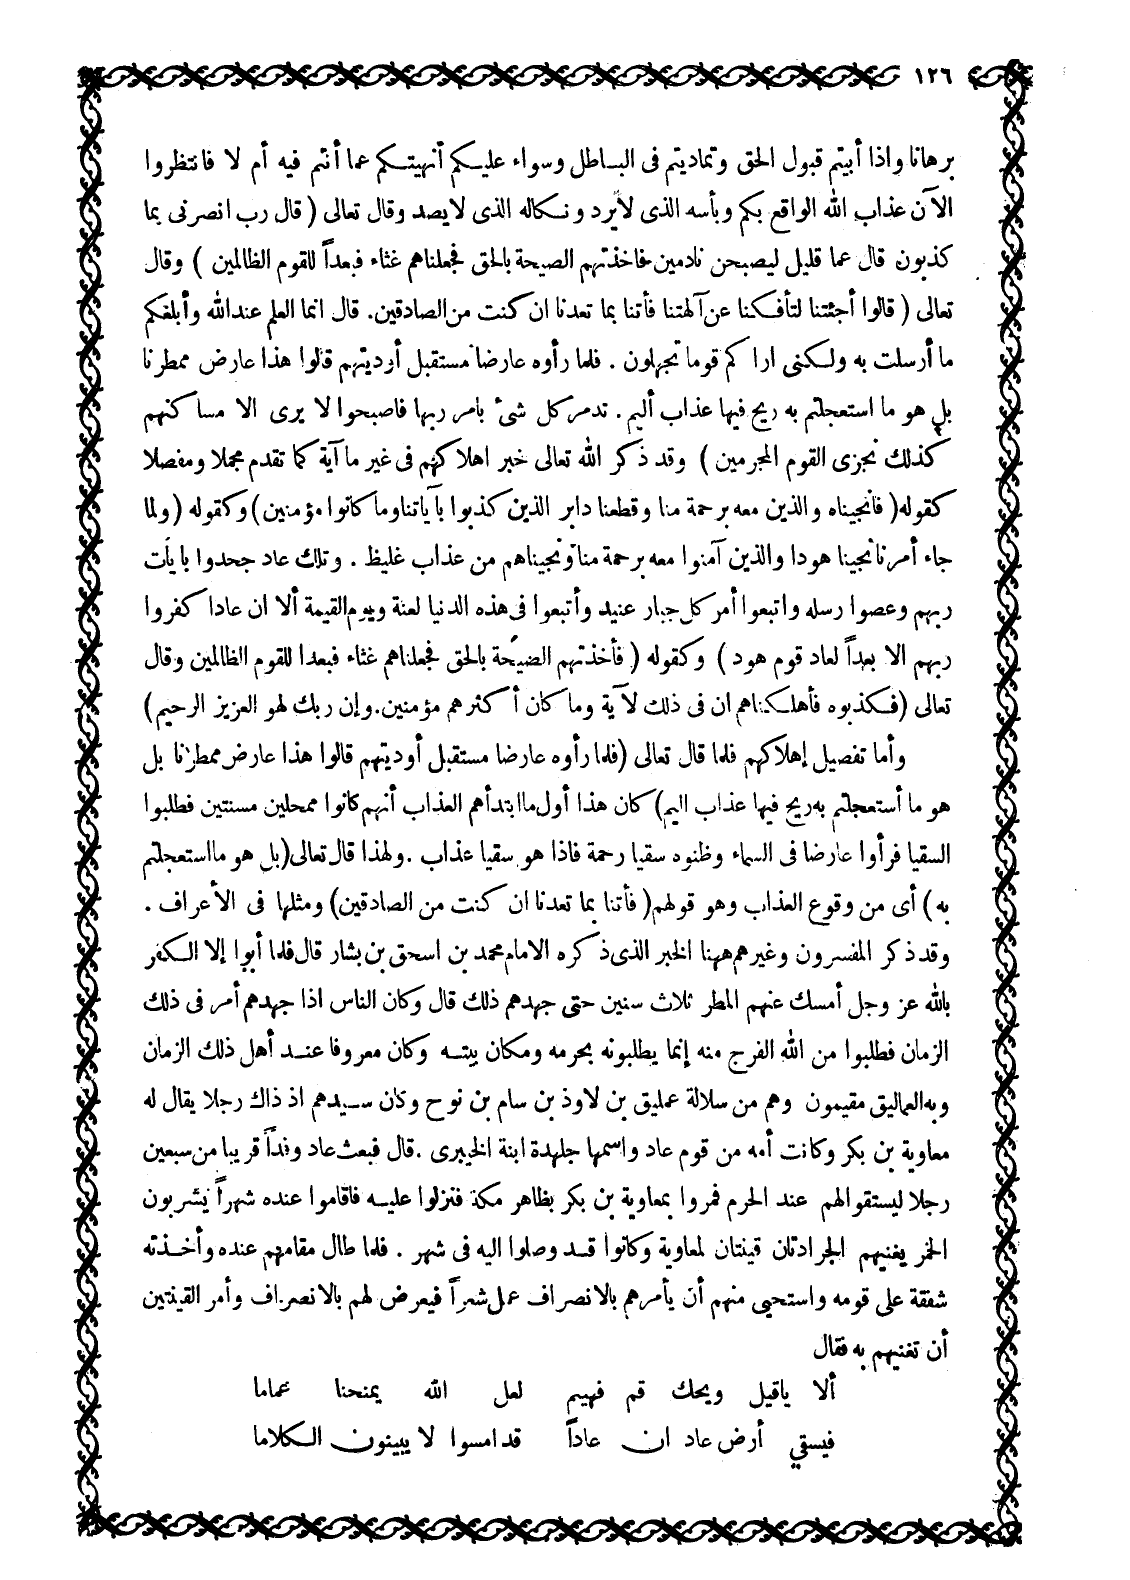 ١٢٦
برهانا واذا أبيتم قبول الحق وتماديتم فى الباطل وسواء عليكم أنهيتكم عما أنتم فيه أم لا فانتظروا
الآن عذاب الله الواقع بكم وبأسه الذى لا يرد ونكاله الذى لا يصد وقال تعالى ( قال رب انصرنى بما
كذبون قال عما قليل ليصبحن نادمين فاخذتهم الصيحة بالحق فجعلناهم غثاء فبعداً للقوم الظالمين ) وقال
تعالى ( قالوا أجئتنا لتأفكنا عن آلهتنا فأتنا بما تعدنا ان كنت من الصادقين. قال انما العلم عند الله وأبلغكم
ما أرسلت به ولكنى اراكم قوما تجهلون . فلما رأوه عارضا مستقبل أوديتهم قالوا هذا عارض ممطرنا
بل هو ما استعجلتم به ريح فيها عذاب أليم . تدمر كل شئ بامر ربها فاصبحوا لا يرى الا مساكنهم
كذلك نجزى القوم المجرمين ) وقد ذكر الله تعالى خبر اهلاكهم فى غير ما آية كما تقدم مجملا ومفصلا
كقوله ( فانجيناه والذين معه برحمة منا وقطعنا دابر الذين كذبوا بآياتنا وما كانوا مؤمنين ) وكقوله ( ولما
جاء أمرنا نجينا هودا والذين آمنوا معه برحمة منا ونجيناهم من عذاب غليظ . وتلك عاد جحدوا بايات
ربهم وعصوا رسله واتبعوا أمر كل جبار عنيد وأتبعوا فى هذه الدنيا لعنة ويوم القيمة ألا ان عادا كفروا
ربهم الا بعداً لعاد قوم هود ) وكقوله ( فأخذتهم الصيحة بالحق فجعلناهم غثاء فبعدا للقوم الظالمين وقال
تعالى ( فكذبوه فأهلكناهم ان فى ذلك لآية وما كان أكثرهم مؤمنين. وإن ربك لهو العزيز الرحيم )
وأما تفصيل إهلاكهم فلما قال تعالى ( فلما رأوه عارضا مستقبل أوديتهم قالوا هذا عارض ممطرنا بل
هو ما أستعجلتم به ريح فيها عذاب اليم ) كان هذا أول ما ابتدأهم العذاب أنهم كانوا ممحلين مسنتين فطلبوا
السقيا فرأوا عارضا فى السماء وظنوه سقيا رحمة فاذا هو سقيا عذاب . ولهذا قال تعالى ( بل هو ما استعجلتم
به ) أى من وقوع العذاب وهو قولهم ( فأتنا بما تعدنا ان كنت من الصادقين ) ومثلها فى الأعراف .
وقد ذكر المفسرون وغيرهم ههنا الخبر الذى ذكره الامام محمد بن اسحق بن بشار قال فلما أبوا إلا الكفر
بالله عز وجل أمسك عنهم المطر ثلاث سنين حتى جهدهم ذلك قال وكان الناس اذا جهدهم أمر فى ذلك
الزمان فطلبوا من الله الفرج منه إنما يطلبونه بحرمه ومكان بيته وكان معروفا عند أهل ذلك الزمان
وبه العماليق مقيمون وهم من سلالة عمليق بن لاوذ بن سام بن نوح وكان سيدهم اذ ذاك رجلا يقال له
معاوية بن بكر وكانت أمه من قوم عاد واسمها جلهدة ابنة الخيبرى . قال فبعث عاد وفداً قريبا من سبعين
رجلا ليستقوا لهم عند الحرم فمروا بمعاوية بن بكر بظاهر مكة فنزلوا عليه فاقاموا عنده شهراً يشربون
الخمر يغنيهم الجرادتان قينتان لمعاوية وكانوا قد وصلوا اليه فى شهر . فلما طال مقامهم عنده وأخذته
شفقة على قومه واستحيى منهم أن يأمرهم بالانصراف عمل شعراً فيعرض لهم بالانصراف وأمر القينتين
أن تغنيهم به فقال
ألا ياقيل ويحك قم فهيم لعل الله يمنحنا غماما
فيسقي أرض عاد ان عاداً قد امسوا لا يبينون الكلاما